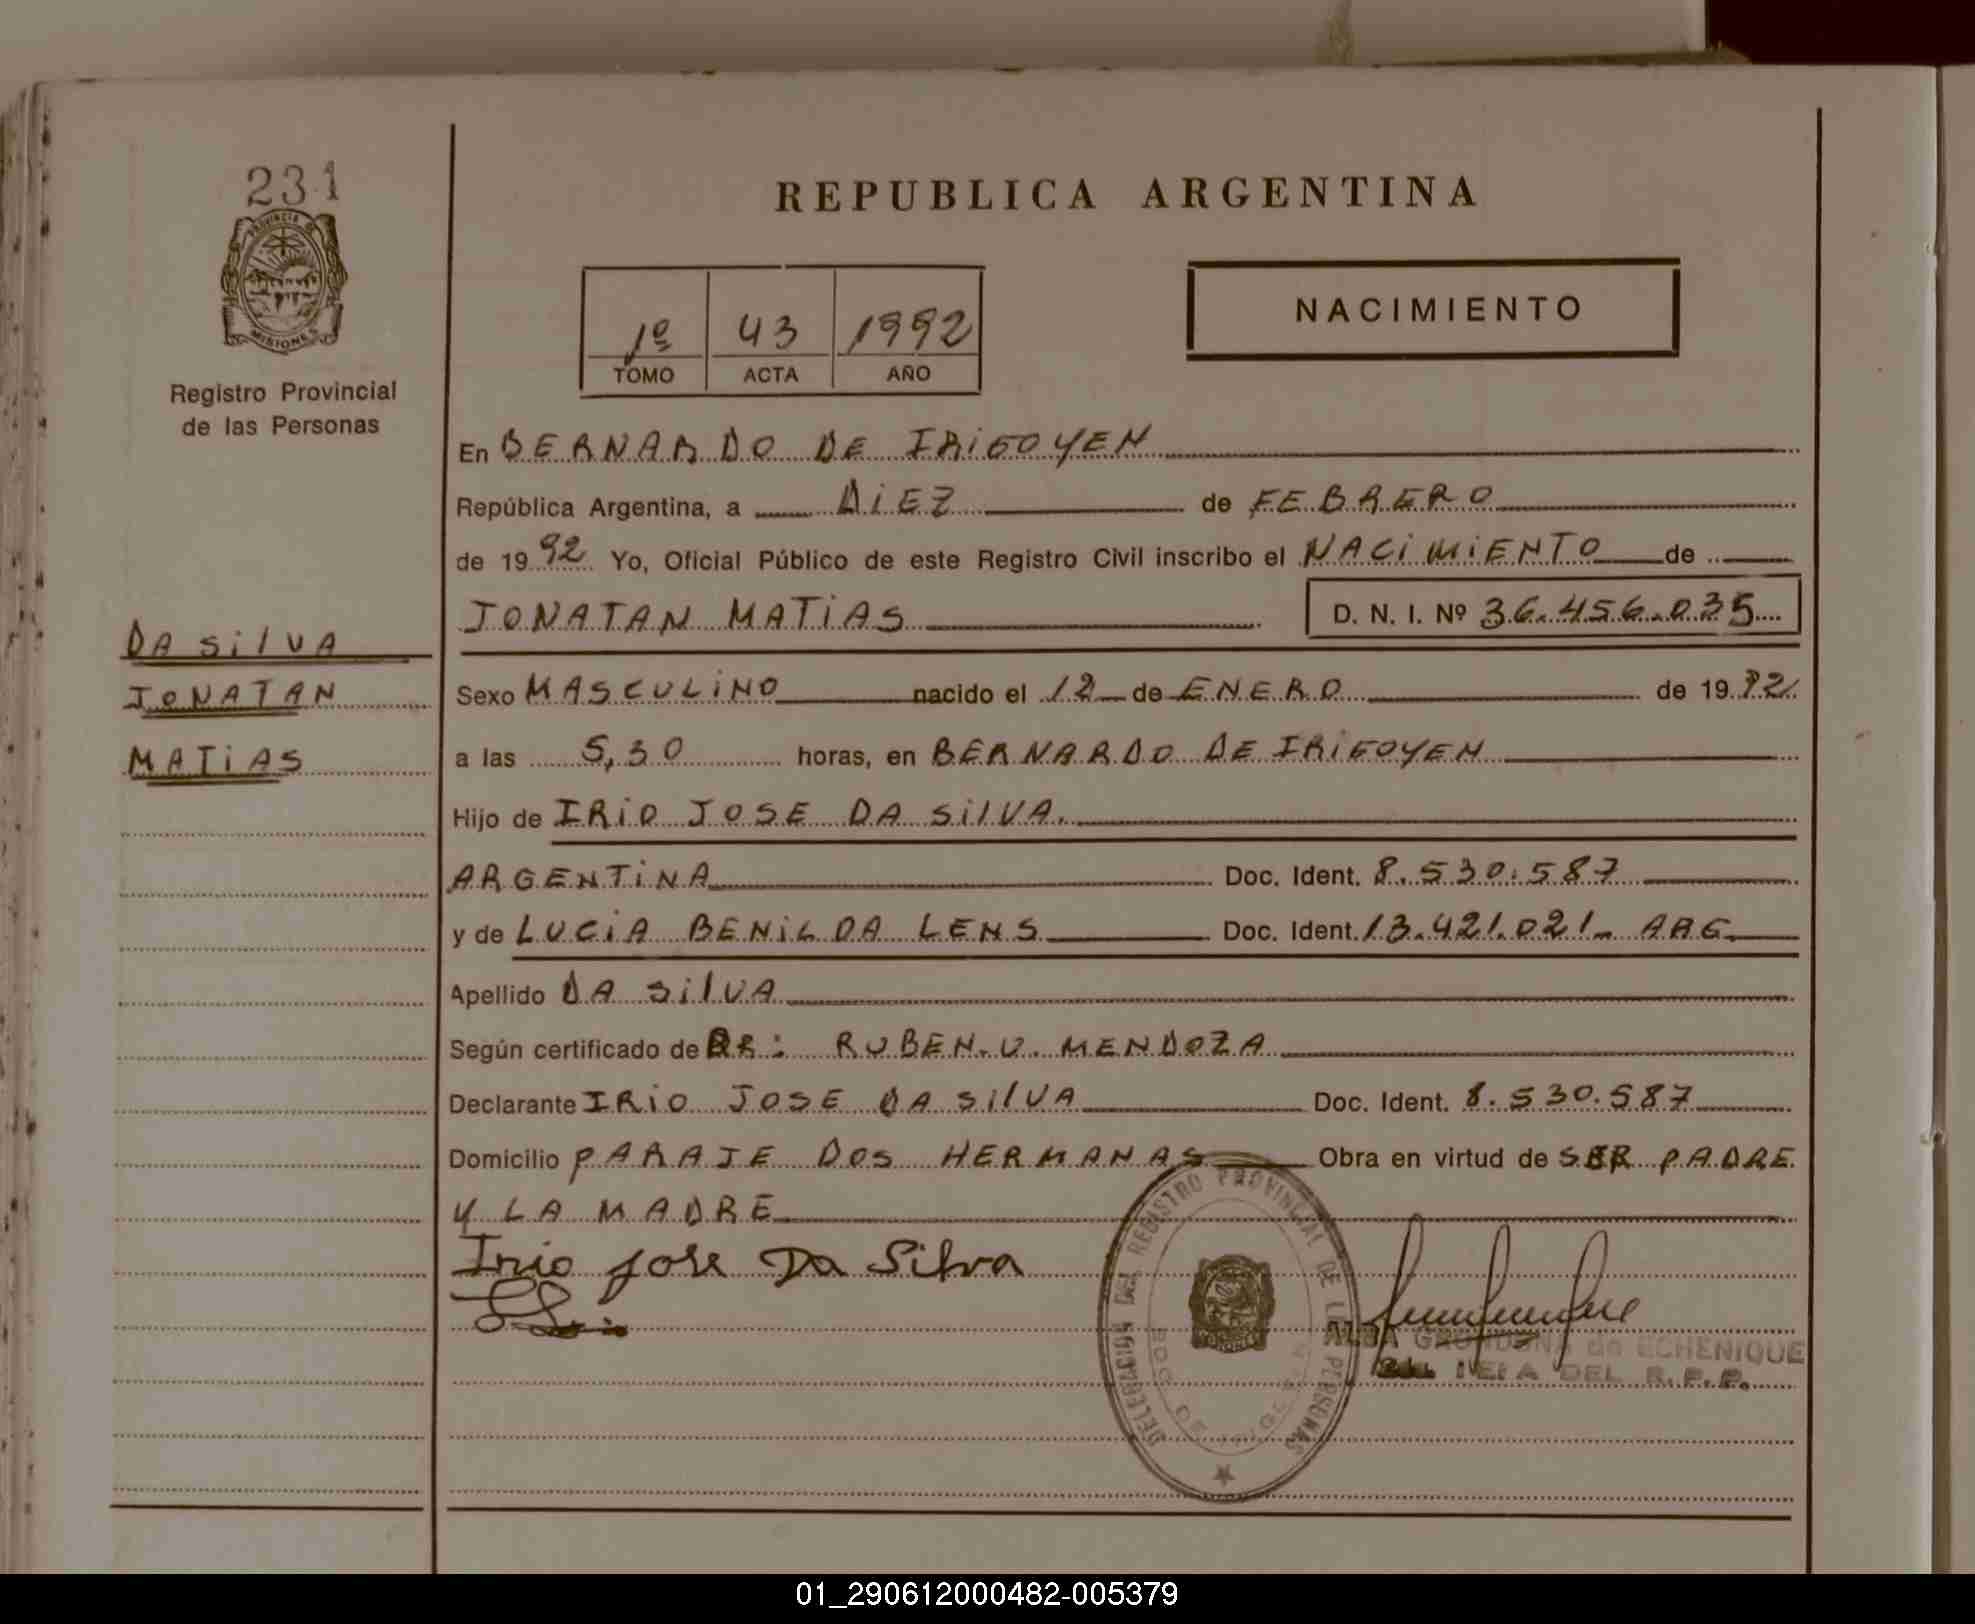 231
PROVINCIA DE
MISIONES
Registro Provincial
de las Personas
DA SilVA
JONATAN
MATIAS
REPUBLICA ARGENTINA
1º 43 1992
TOMO ACTA AÑO
NACIMIENTO
En BERNARDO DE IRIGOYEN
República Argentina, a DIEZ de FEBRERO
de 1992 Yo, Oficial Público de este Registro Civil inscribo el NACIMIENTO de
JONATAN MATIAS D. N. I. Nº 36.456.035
Sexo MASCULINO nacido el 12 de ENERO de 1992
a las 5,30 horas, en BERNARDO DE IRIGOYEN
Hijo de IRIO JOSE DA SilVA.
ARGENTINA Doc. Ident. 8.530.587
y de LUCIA BENILDA LENS Doc. Ident. 13.421.021- ARG
Apellido DA SilVA
Según certificado de DR: RUBEN. U. MENDOZA
Declarante IRIO JOSE DA SilVA Doc. Ident. 8.530.587
Domicilio PARAJE DOS HERMANAS Obra en virtud de SER PADRE
Y LA MADRE
Irio Jose Da Silva
DELEGACION DEL REGISTRO PROVINCIAL DE L PERSONAS
MISIONES
ALBA de ECHENIQUE
JEFA DEL R.P.P.
01_290612000482-005379